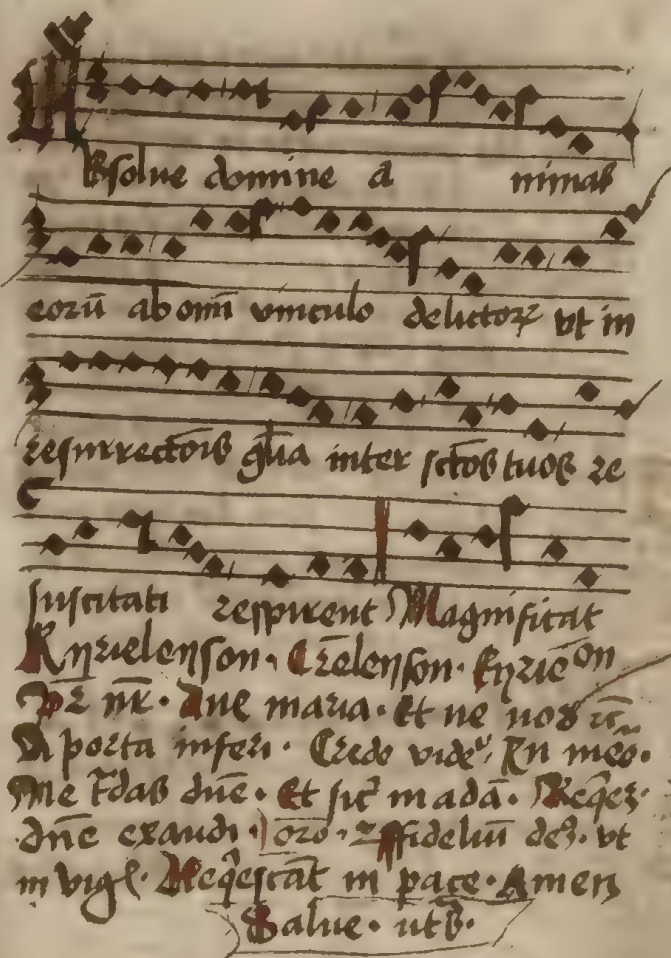 Absolue domine a nimas
eorū ab omī vinculo delictoꝝ vt in
resurrectōis gľia inter sctōs tuos re
suscitati respirent Magnificat
Kyrieleyson. Cr̄eleyson. Kyrieon
Pr̄ nr̄. Aue maria. Et ne nos
A porta inferi. Credo vide. In
Ne tͬdas dnē. Et sic in adā. Reqes.
dnē exaudi. oro. ffideliū des. vt
in vigl. Reqescāt in pace. Amen
Salue. utˢ.